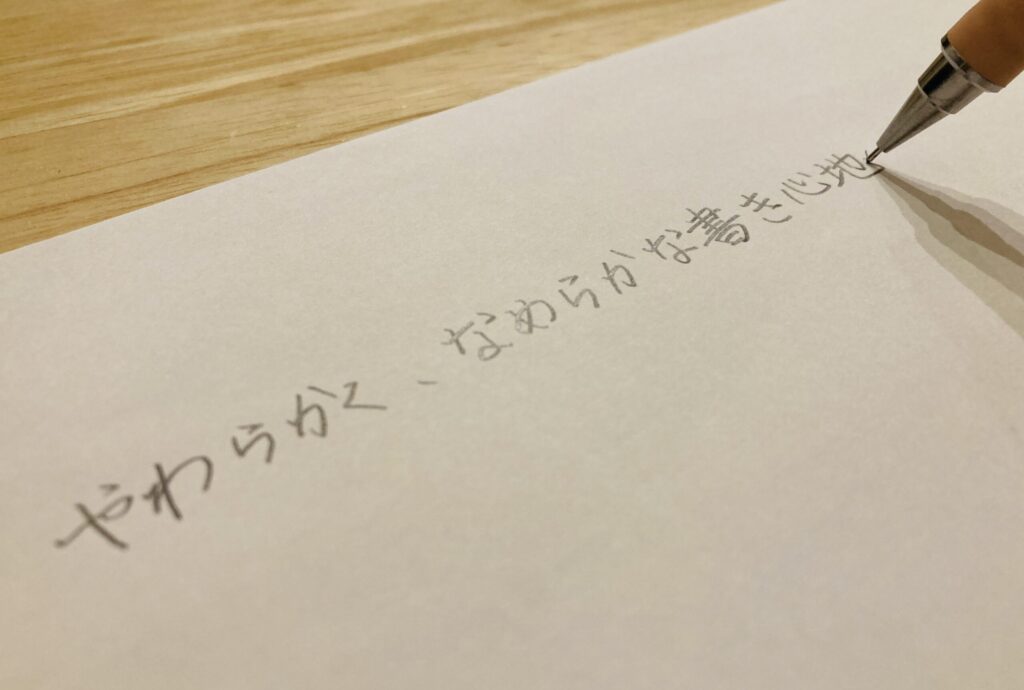 やわらかく、なめらかな書き心地